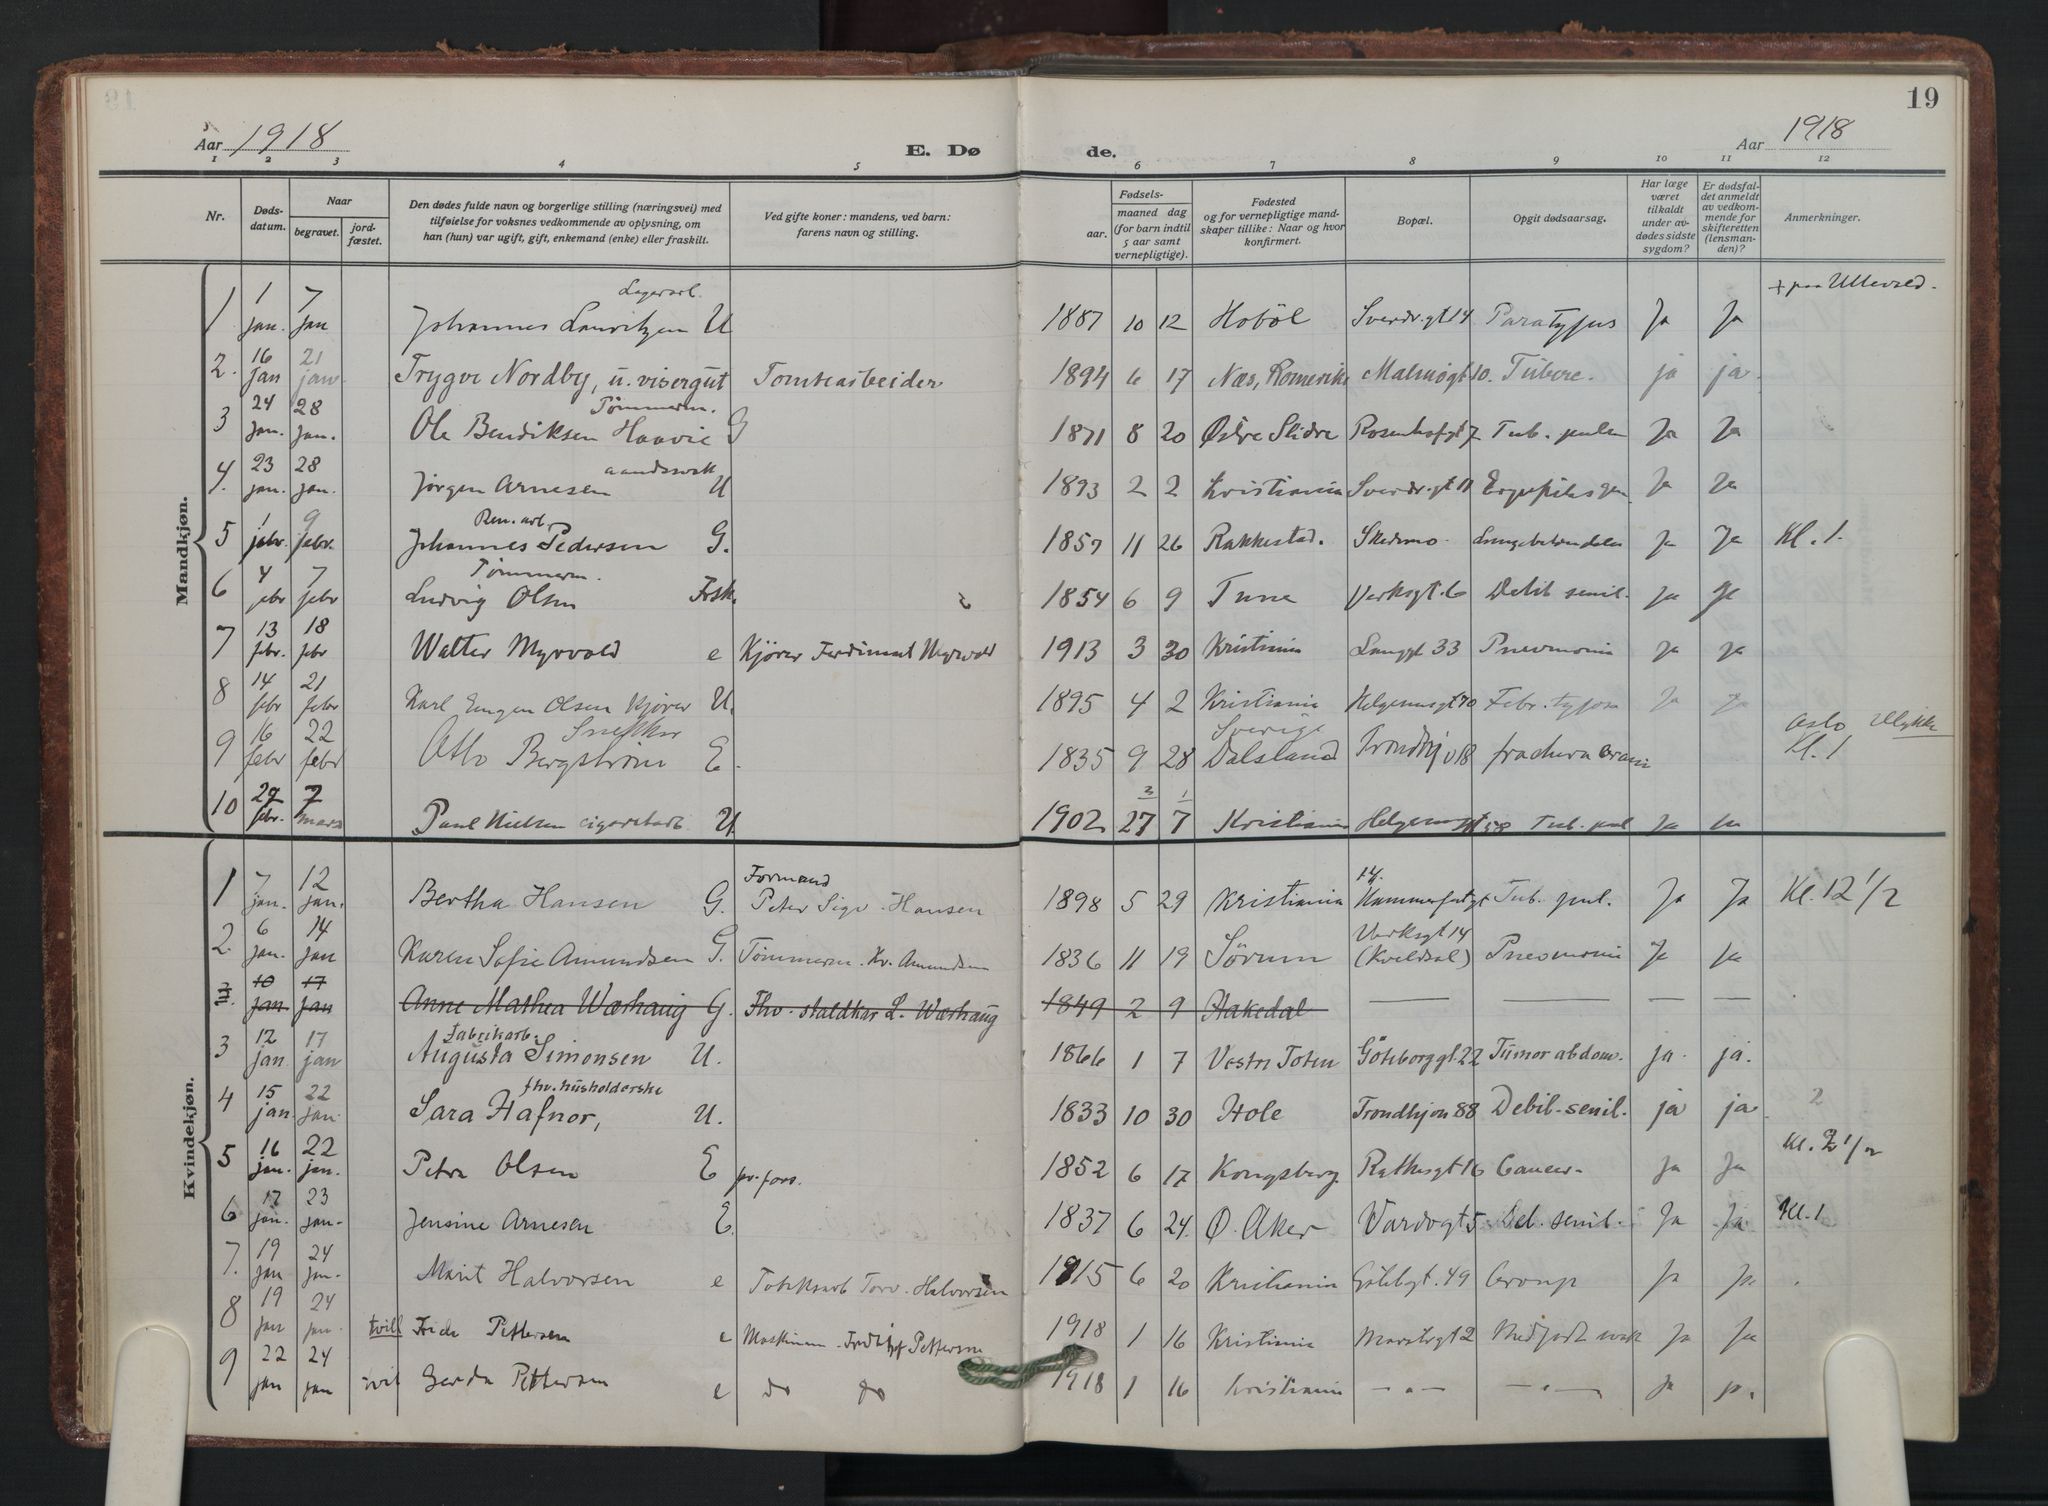 19
Aar 1918
E. Døde.
Aar 1918
1 2 3 4 5 6 7 8 9 10 11 12
Nr.
Døds-datum.
Naar
begravet.
jord-fæstet.
Den dødes fulde navn og borgerlige stilling (næringsvei) med
tilføielse for voksnes vedkommende av oplysning, om
han (hun) var ugift, gift, enkemand (enke) eller fraskilt.
Ved gifte koner: mandens, ved barn:
farens navn og stilling.
Fødsels-
aar.
maaned dag
(for barn indtil
5 aar samt
vernepligtige).
Fødested
og for vernepligtige mand-
skaper tillike: Naar og hvor
konfirmert.
Bopæl.
Opgit dødsaarsag.
Har læge
været
tilkaldt
under av-
dødes sidste
sygdom?
Er dødsfal-
det anmeldt
av vedkom-
mende for
skifteretten
(lensman-
den)?
Anmerkninger.
Mandkjøn.
1 1 jan. 7 jan Johannes Lauritzen Lagerarb. U 1887 10 12 Hobøl Sverdr.gt 14 Paratyfus Ja Ja + paa Ullevold.
2. 16 jan 21 jan. Trygve Nordby, u. visergut Tomtearbeider 1894 6 17 Næs, Romerike Malmøgt 10. Tuberc. ja ja.
3 24 jan. 28 jan. Ole Bendiksen Haavie Tømmerm. G 1871 8 20 Østre Slidre Rosenhofgt 7 Tub. pulm Ja Ja
4. 23 jan. 28 jan. Jørgen Arnesen aandssvak U 1893 2 2 Kristiania Sverdr.gt 11 Ja Ja
5 1 febr. 9 febr. Ren. arb. Johannes Pedersen G. 1857 11 26 Rakkestad. Skedsmo. Lungebetændelse Ja Ja Kl. 1.
6 4 febr 7 febr Tømmerm. Ludvig Olsen Frsk. 1854 6 9 Tune Verksgt. 6 Debil senil. Ja Ja
7 13 febr. 18 febr Walter Myrvold e Kjører Ferdinand Myrvold 1913 3 30 Kristiania Langgt 33 Pneumonia Ja Ja
8 14 febr 21 febr Karl Eugen Olsen Kjører U. 1895 4 2 Kristiania Helgesensgt 70 Febr. typhoi Ja Ja
9 16 febr 22 febr Otto Bergstrøm Snekker E. 1835 9 28 Sverige Dalsland Trondhj v 18 fractura cranii Oslo Ulykke Kl. 1
10 27 febr. 7 mars Paul Nielsen cigaretarb U. 1902 27 7 3 1 Kristiania Helgesensgt 58 Tub. pul Ja Ja
Kvindekjøn.
1 7 jan. 12 jan. Bertha Hansen G. Formand Peter Sigv. Hansen 1898 5 29 Kristiania 14. Hammerfestgt Tub. pul. Ja Ja Kl. 12 1/2
2. 6 jan. 14 jan Karen Sofie Amundsen G. Tømmerm. Kr. Amundsen 1836 11 19 Sørum Verksgt 14 (Kveldsol) Pneomonia Ja Ja
3. 10 jan 17 jan Anne Mathea Wærhaug G. Fhv. staldkar L. Wærhaug 1849 2 9 Hakedal — — — —
3 12 jan 17 jan Fabrikarb. Augusta Simonsen U. 1866 1 7 Vestre Toten Göteborggt. 22 Tumor abdom. ja. ja.
4 15 jan. 22 jan. fhv. husholderske Sara Hafnor, U. 1833 10 30 Hole Trondhjv 88 Debil. senil. ja ja. 2
5 16 jan. 22 jan. Petra Olsen E pr. fors. 1852 6 17 Kongsberg Rathkesgt 16 Cancer. Ja Ja Kl. 2 1/2
6 17 jan. 23 jan. Jensine Arnesen E. 1837 6 24. Ø. Aker Vardøgt 5 Deb. senil. Ja Ja Kl. 1
7. 19 jan 24 jan. Marit Halvorsen e Tobksarb Torv. Halvorsen 1915 6 20 Kristiania Götebgt. 49 Croup Ja Ja
8 19 jan 24 jan. tvill Frida Pettersen e Maskinm. Fridthjof Pettersen 1918 1 16 Kristiania Marstrgt 2 Medfødt svak Ja Ja
9 22 jan 24 jan tvil Gerda Pettersen e do do 1918 1 16 Kristiania — " — — " — Ja Ja.